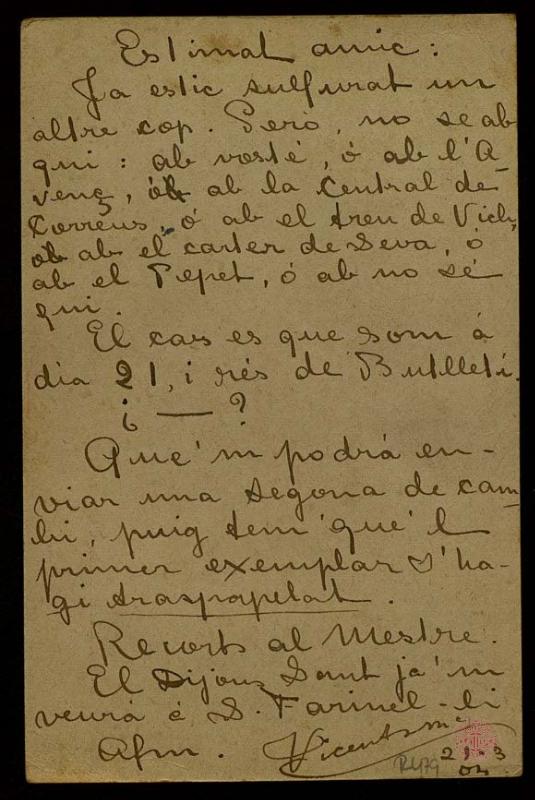 Estimat amic:
Ja estic sulfurat un
altre cop. Peró, no se ab
qui: ab vosté, ó ab l'A
venç, ó ab la Central de
Correus, ó ab el tren de Vich,
ó ab el carter de Seva, ó
ab el Pepet, ó ab no sé
qui.
El cas es que som á
dia 21, i rés de Butlletí.
¿ — ?
Que'm podrá en-
viar una segona de cam-
bi, puig tem que'l
primer exemplar s'ha-
gi traspapelat.
Recorts al Mestre.
El Dijous Sant ja'm
veurá á S. Farinel-li
Afm. Vicents Mª
R479 21-3
04